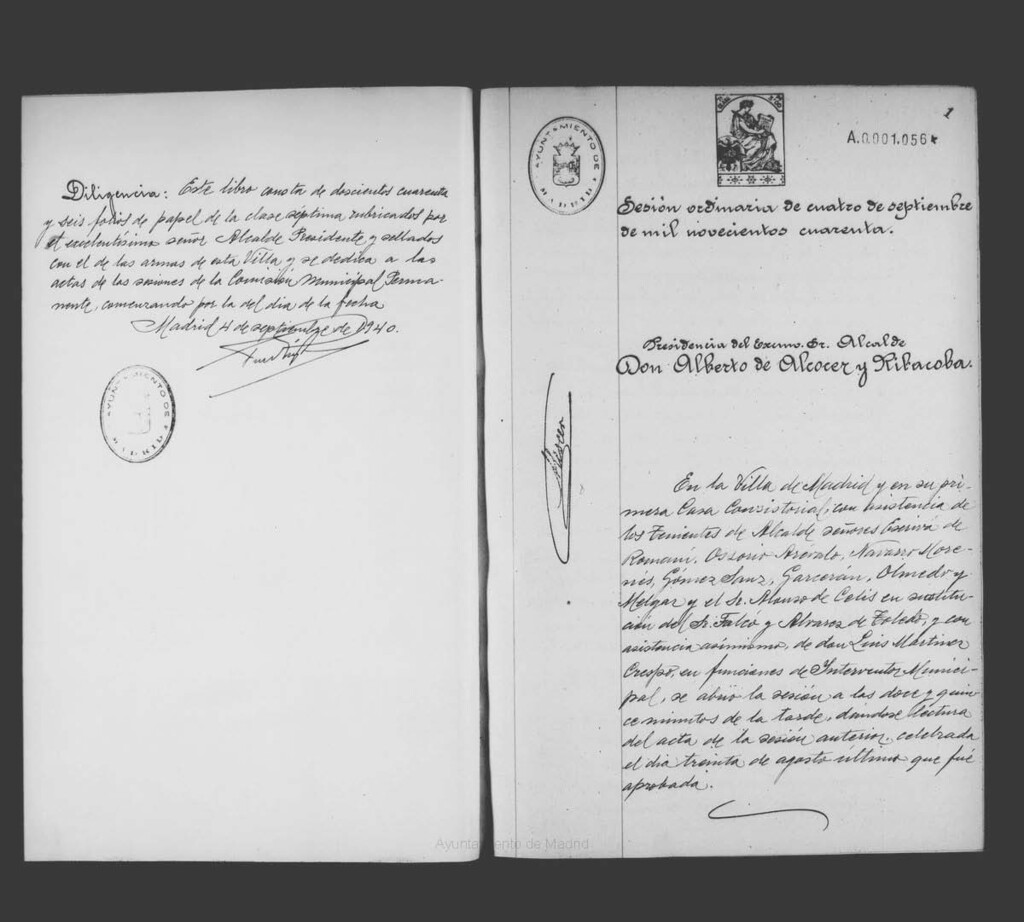 Diligencia: Este libro consta de doscientos cuarenta
y seis folios de papel de la clase séptima rubricados por
el excelentísimo señor Alcalde Presidente y sellados
con el de las armas de esta Villa y se dedica a las
actas de las sesiones de la Comisión Municipal Perma-
nente, comenzando por la del día de la fecha
Madrid 4 de septiembre de 1940.
AYUNTAMIENTO DE
MADRID
AYUNTAMIENTO DE
MADRID
1
A.0.001.056*
Sesión ordinaria de cuatro de septiembre
de mil novecientos cuarenta.
Presidencia del Excmo. Sr. Alcalde
Don Alberto de Alcocer y Ribacoba.
Alcocer
En la Villa de Madrid y en su pri-
mera Casa Consistorial, con asistencia de
los Tenientes de Alcalde señores Escrivá de
Romaní, Ossorio Arévalo, Navarro More-
nés, Gómez Sanz, Garcerán, Olmedo y
Melgar y el Sr. Alonso de Celis en sustitu-
ción del Sr. Falcó y Alvarez de Toledo, y con
asistencia asimismo, de don Luis Martinez
Crespo, en funciones de Interventor Munici-
pal, se abrió la sesión a las doce y quin-
ce minutos de la tarde, dándose lectura
del acta de la sesión anterior, celebrada
el día treinta de agosto último que fué
aprobada.
Ayuntamiento de Madrid